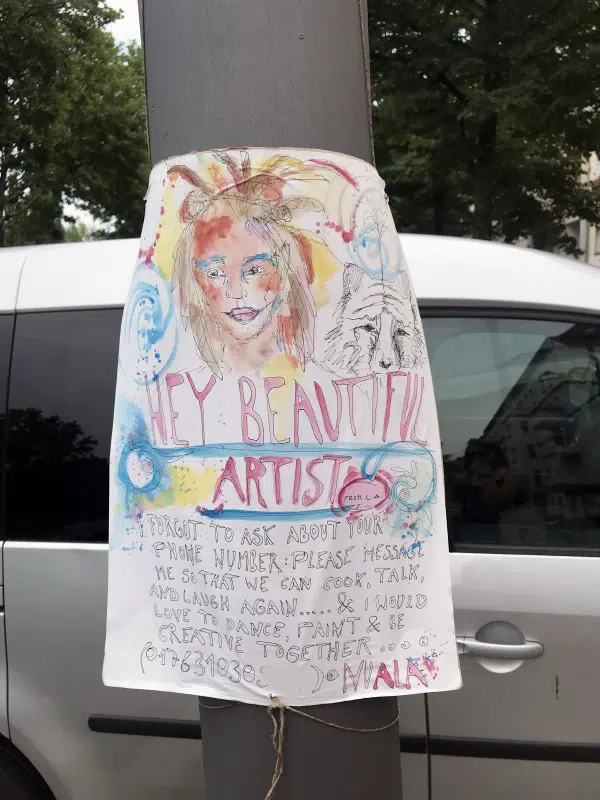 HEY BEAUTIFUL
ARTIST
FROM L.A.
I FORGOT TO ASK ABOUT YOUR
PHONE NUMBER: PLEASE MESSAGE
ME SO THAT WE CAN COOK, TALK,
AND LAUGH AGAIN..... & I WOULD
LOVE TO DANCE, PAINT & BE
CREATIVE TOGETHER...
(017631038 )
NIALA